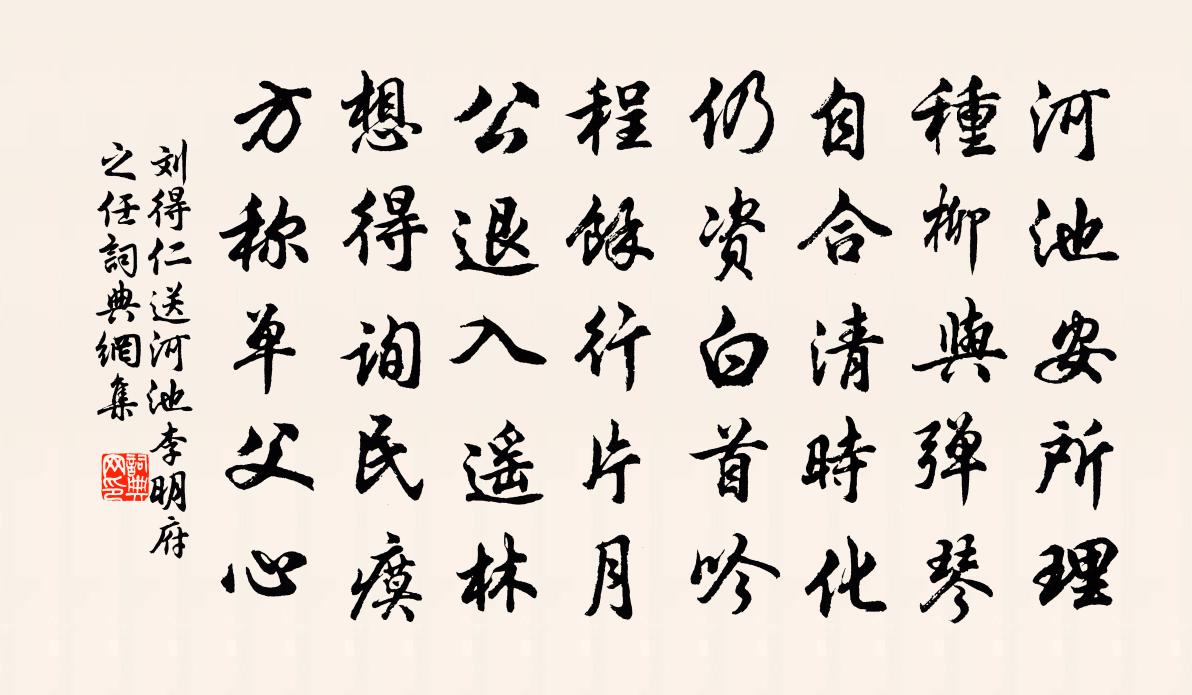 河池安所理
種柳與弹琴
自合清時化
仍资白首吟
程餘行片月
公退入遥林
想得询民瘼
方称单父心
刘得仁送河池李明府
之任詞典網集
詞典
网印